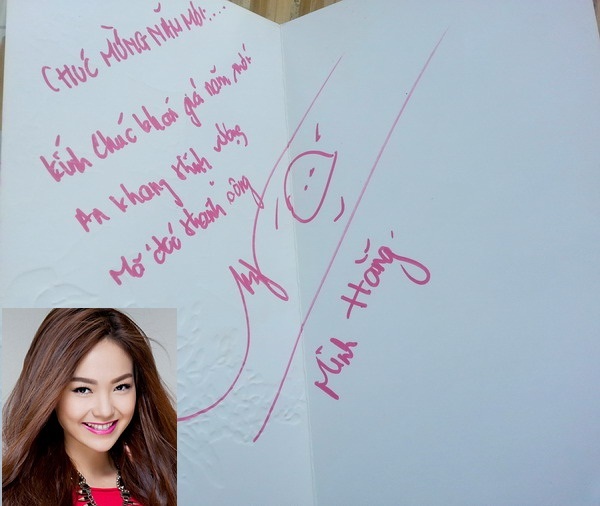 CHÚC MỪNG NĂM MỚI.....
kính chúc khán giả năm mới
An khang thịnh vượng
Mọi đều thành công
Minh Hằng